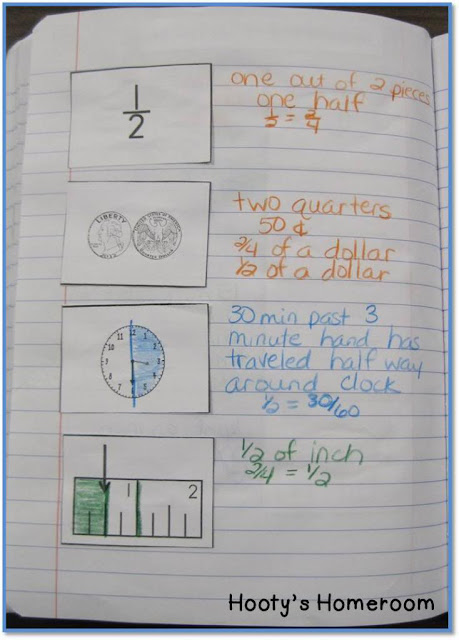 1/2
one out of 2 pieces
one half
1/2 = 2/4
LIBERTY
two quarters
50¢
2/4 of a dollar
1/2 of a dollar
12 1 2 3 4 5 6 7 8 9 10 11
30 min past 3
minute hand has
traveled half way
around clock
1/2 = 30/60
1 2
1/2 of inch
2/4 = 1/2
Hooty's Homeroom